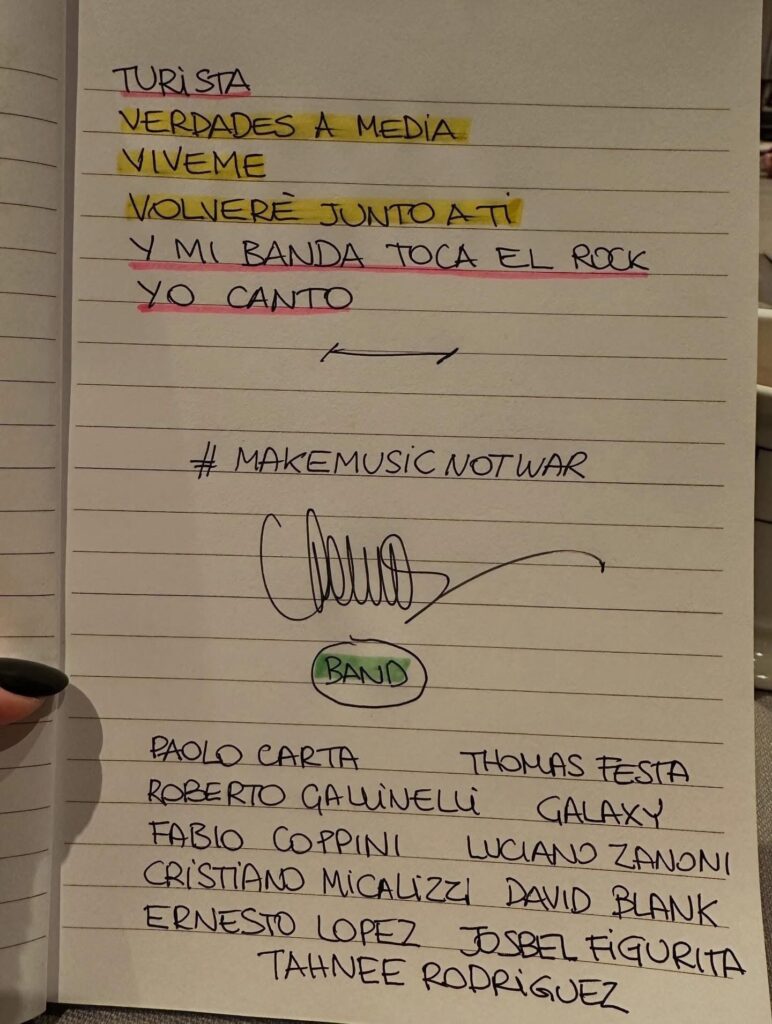 TURiSTA
VERDADES A MEDiA
ViVEME
VOLVERÈ JUNTO A Ti
Y Mi BANDA TOCA EL ROCK
YO CANTO
# MAKEMUSiCNOTWAR
BAND
PAOLO CARTA THOMAS FESTA
ROBERTO GALLiNELLi GALAXY
FABiO COPPiNi LUCiANO ZANONi
CRiSTiANO MiCALiZZi DAViD BLANK
ERNESTO LOPEZ JOSBEL FiGURiTA
TAHNEE RODRiGUEZ